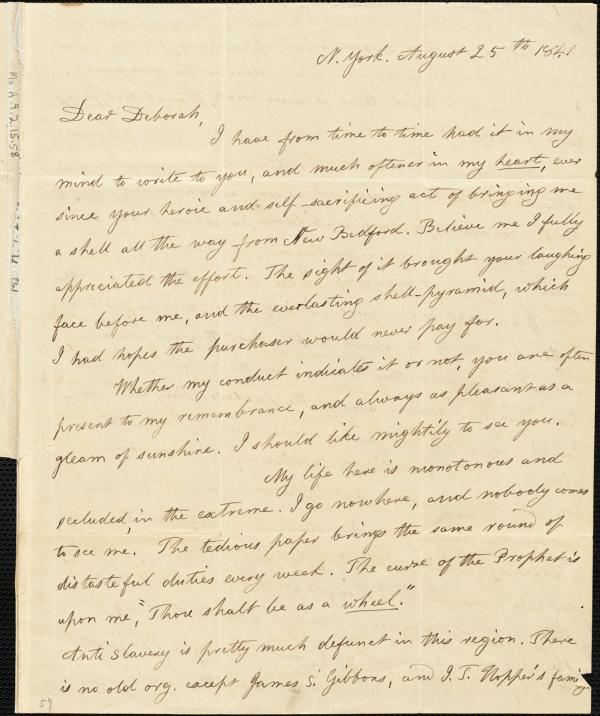 N. York. August 25th 1841
Dear Deborah,
I have from time to time had it in my
mind to write to you, and much oftener in my heart, ever
since your heroic and self-sacrificing act of bringing me
a shell all the way from New Bedford. Believe me I fully
appreciated the effort. The sight of it brought your laughing
face before me, and the everlasting shell-pyramid, which
I had hopes the purchaser would never pay for.
Whether my conduct indicates it or not, you are often
present to my remembrance, and always as pleasant as a
gleam of sunshine. I should like mightily to see you.
My life here is monotonous and
secluded, in the extreme. I go nowhere, and nobody comes
to see me. The tedious paper brings the same round of
distasteful duties every week. The curse of the Prophet is
upon me, "Thou shalt be as a wheel."
Anti slavery is pretty much defunct in this region. There
is no old org. except James S. Gibbons, and I. T. Hopper's family
Ms.A.9.2.15.58
59